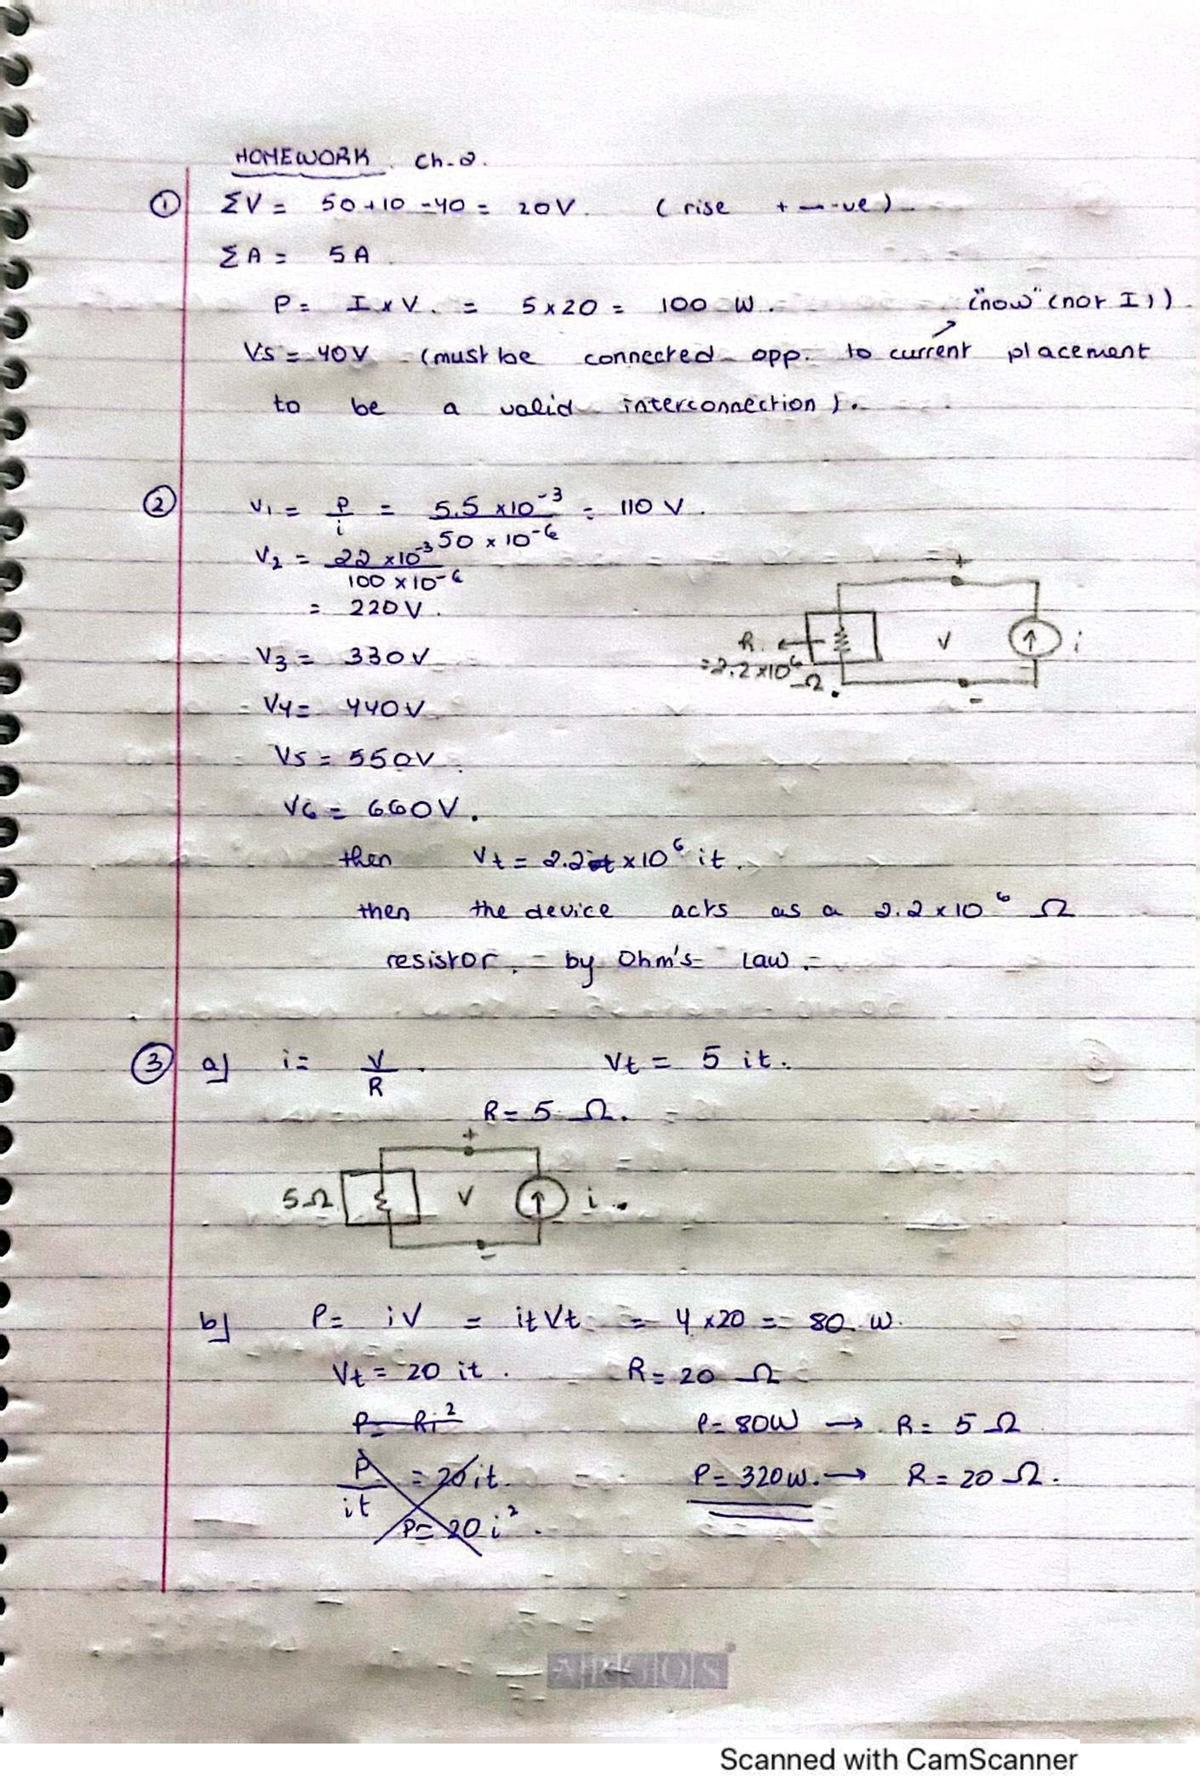 HOMEWORK. Ch-2.
① ΣV = 50+10-40 = 20V. (rise + → -ve)
ΣA = 5A.
P = I x V. = 5 x 20 = 100 W. "now" (not I1)
Vs = 40V (must be connected opp. to current placement
to be a valid interconnection).
② V1 = P/i = 5.5 x10^-3 / 50 x 10^-6 = 110 V.
V2 = 22 x10^-3 / 100 x10^-6
= 220V.
V3 = 330V
V4 = 440V
V5 = 550V.
V6 = 660V.
+
R.
= 2.2 x10^6 Ω.
V
i
-
then Vt = 2.2 x10^6 it.
then the device acts as a 2.2 x 10^6 Ω
resistor. - by Ohm's Law.
③ a) i = V/R. Vt = 5 it.
R = 5 Ω.
+
5Ω V i.
-
b) P = iV = it Vt = 4 x20 = 80 W.
Vt = 20 it. R = 20 Ω
P = Ri² P = 80W → R = 5 Ω
P/it = 20 it. P = 320W. → R = 20 Ω.
P = 20 i².
Scanned with CamScanner